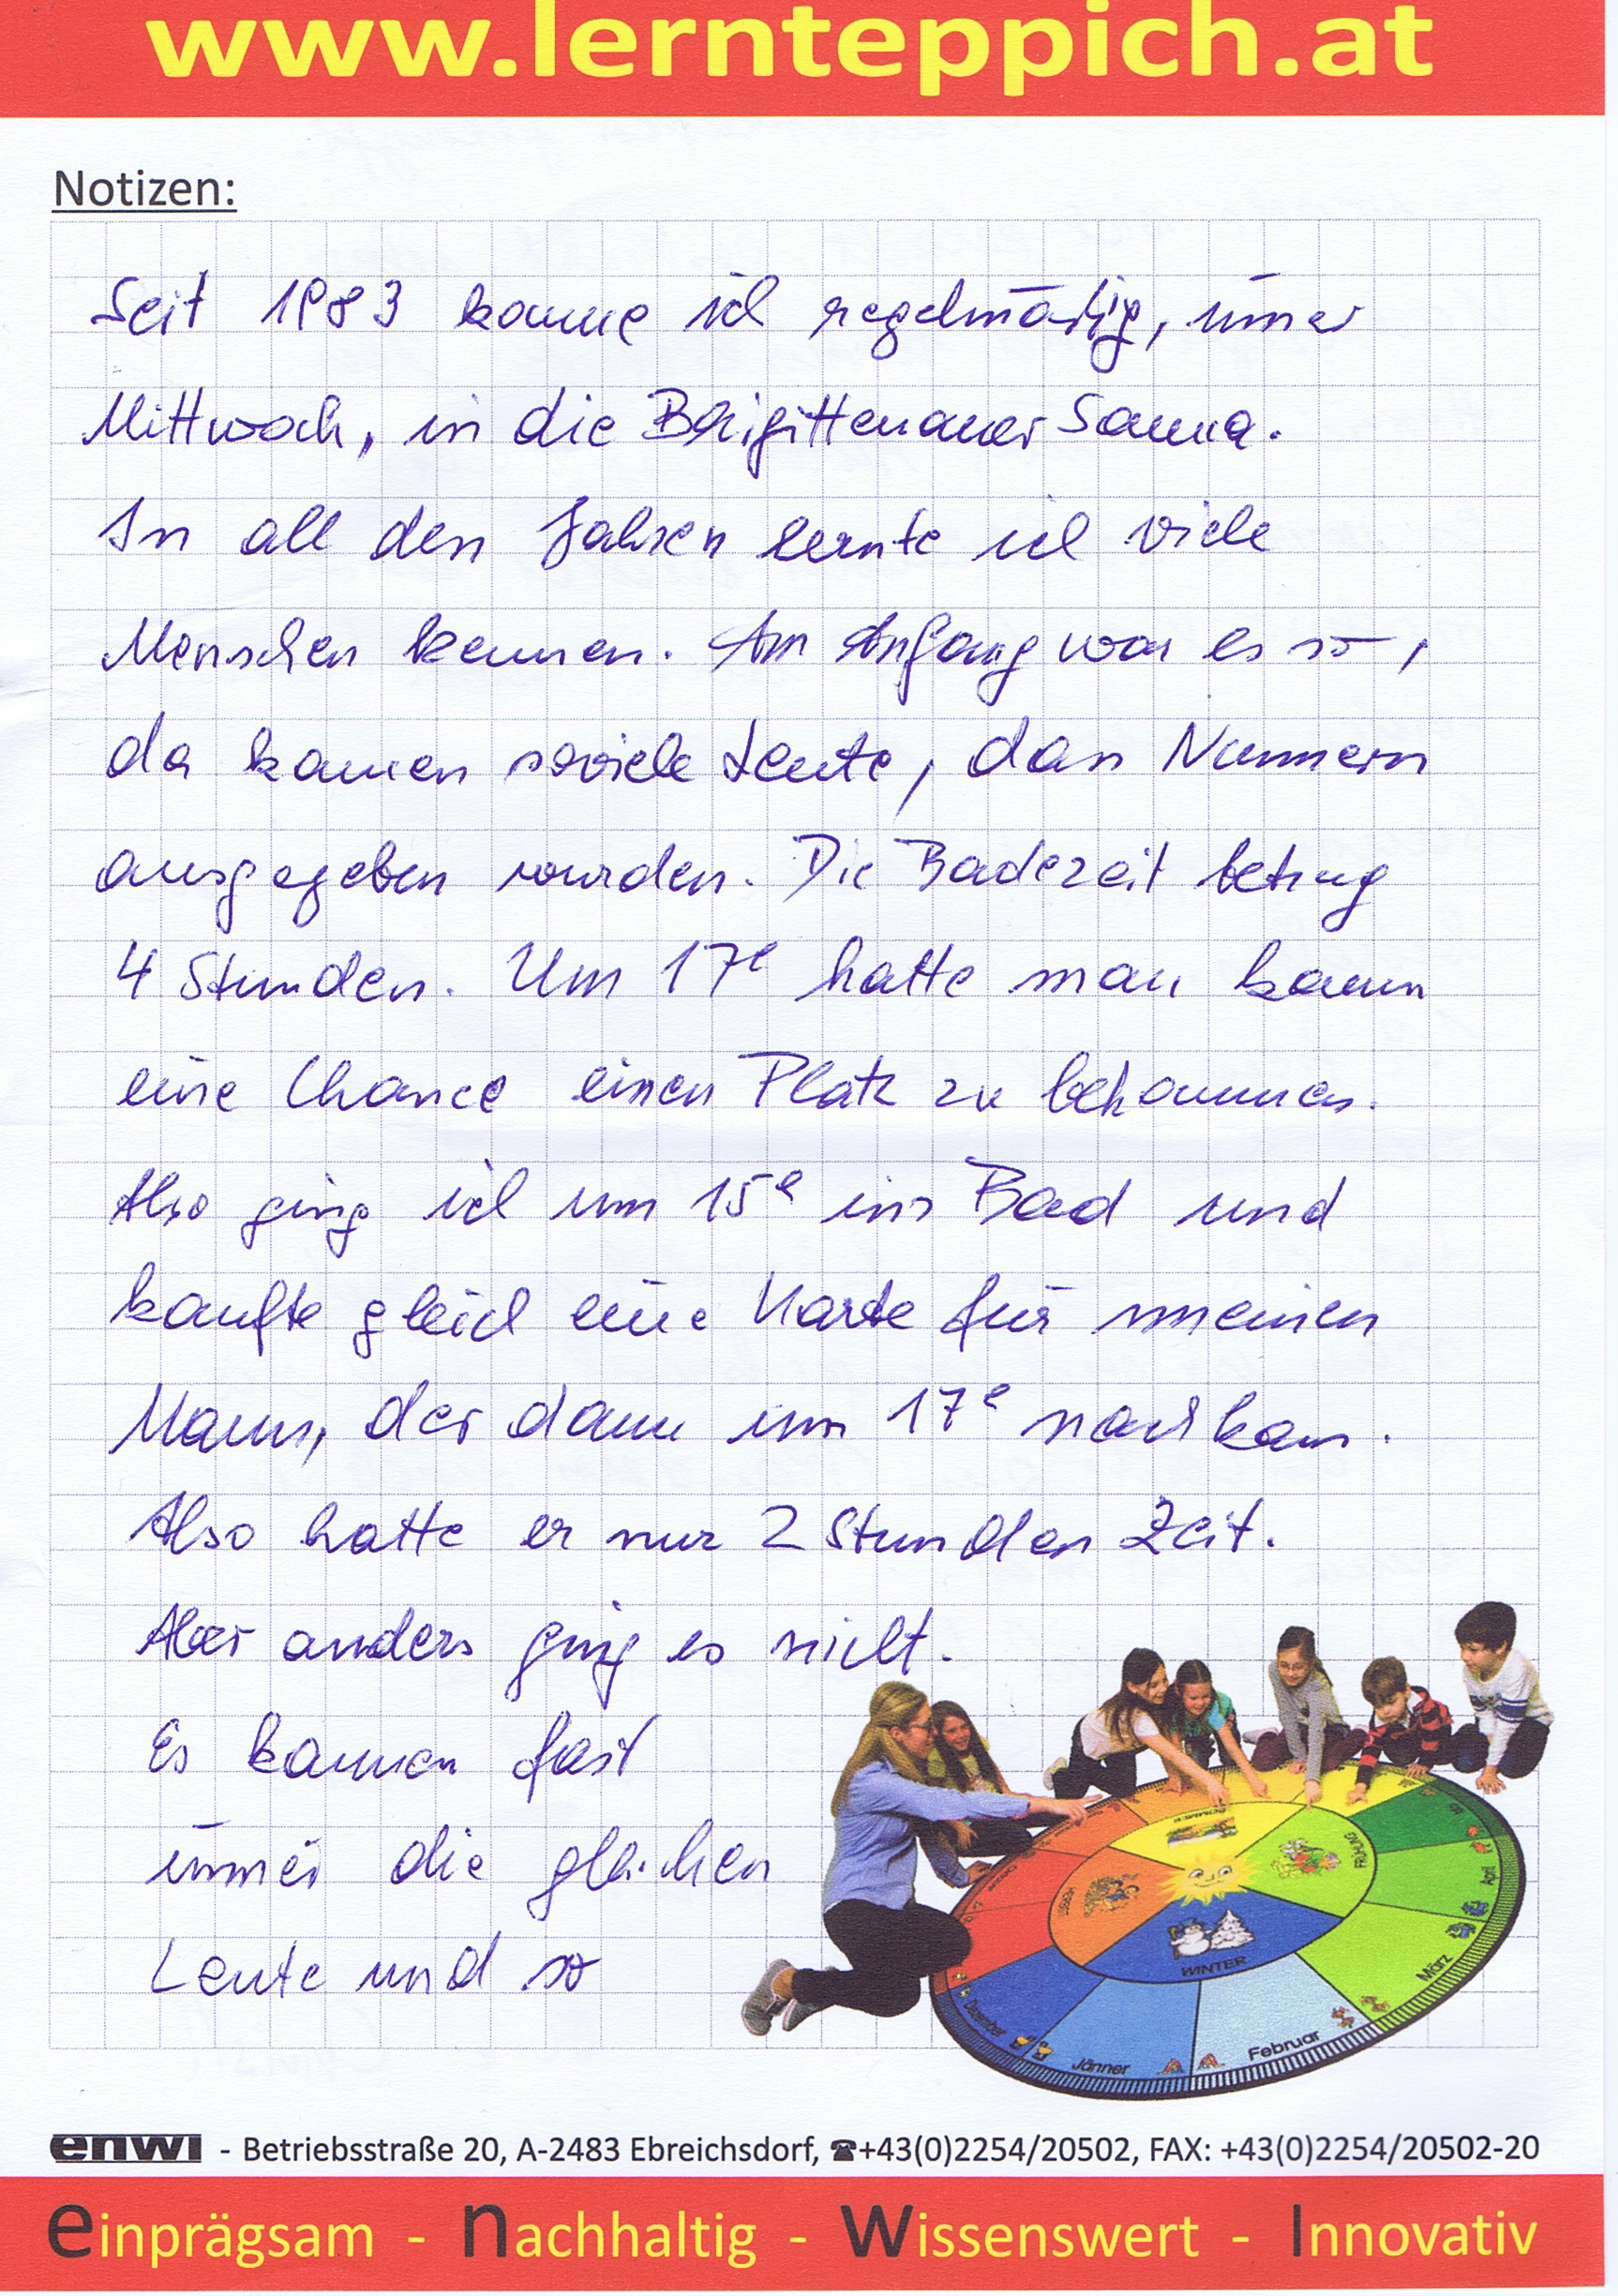 www.lernteppich.at
Notizen:
Seit 1983 komme ich regelmäßig, immer
Mittwoch, in die Brigittenauer Sauna.
In all den Jahren lernte ich viele
Menschen kennen. Am Anfang war es so,
da kamen soviele Leute, dass Nummern
ausgegeben wurden. Die Badezeit betrug
4 Stunden. Um 17ʰ hatte man kaum
eine Chance einen Platz zu bekommen.
Also ging ich um 15ʰ ins Bad und
kaufte gleich eine Karte für meinen
Mann, der dann um 17ʰ nachkam.
Also hatte er nur 2 Stunden Zeit.
Aber anders ging es nicht.
Es kamen fast
immer die gleichen
Leute und so
SOMMER
FRÜHLING
HERBST
WINTER
April
März
Februar
Jänner
Dezember
enwi - Betriebsstraße 20, A-2483 Ebreichsdorf, ☎+43(0)2254/20502, FAX: +43(0)2254/20502-20
einprägsam - nachhaltig - wissenswert - Innovativ